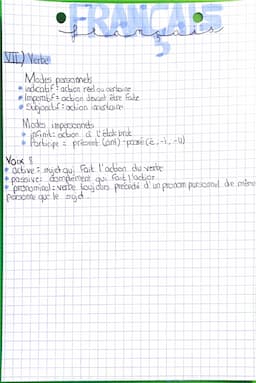 FRANÇAIS
français
VII) Verbe
Modes personnels
* indicatif = action réel ou certaine
* Imperatif = action devant être faite
* Subjonctif = action incertaine
Modes impersonnels
* infinitif: action à l'état brut
* Participe = présent (ant) - passé (é, -i, -u)
Voix :
* active = sujet qui fait l'action du verbe
* passive = complément qui fait l'action
* pronominal = verbe toujours précédé d'un pronom personnel de même
personne que le sujet